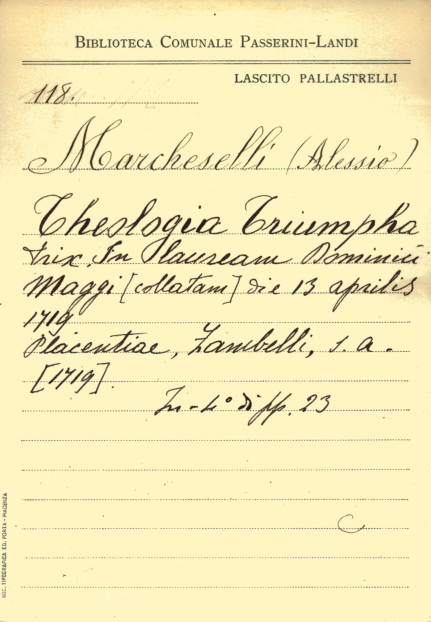 BIBLIOTECA COMUNALE PASSERINI-LANDI
LASCITO PALLASTRELLI
118.
Marcheselli (Alessio)
Theologia Triumpha
trix. In lauream Dominici
Maggi [collatam] die 13 aprilis
1719
Placentiae, Zambelli, s. a.
[1719].
In-4° di pp. 23
C
SOC. TIPOGRAFICA ED. PORTA - PIACENZA